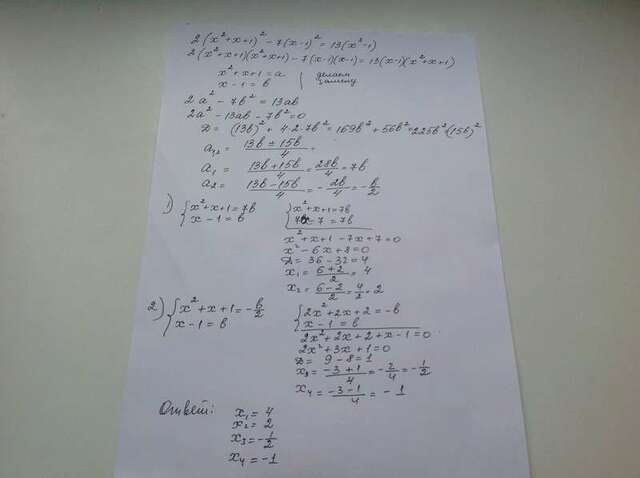 2(x²+x+1)² - 7(x-1)² = 13(x³-1)
2(x²+x+1)(x²+x+1) - 7(x-1)(x-1) = 13(x-1)(x²+x+1)
x²+x+1 = a
x - 1 = b
делаем замену
2a² - 7b² = 13ab
2a² - 13ab - 7b² = 0
D = (13b)² + 4·2·7b² = 169b² + 56b² = 225b² = (15b)²
a₁,₂ = (13b ± 15b)/4 =
a₁ = (13b + 15b)/4 = 28b/4 = 7b
a₂ = (13b - 15b)/4 = -2b/4 = -b/2
1) { x²+x+1 = 7b { x²+x+1 = 7b
x - 1 = b 7x - 7 = 7b
x² + x + 1 - 7x + 7 = 0
x² - 6x + 8 = 0
D = 36 - 32 = 4
x₁ = (6+2)/2 = 4
x₂ = (6-2)/2 = 4/2 = 2
2) { x² + x + 1 = -b/2 { 2x² + 2x + 2 = -b
x - 1 = b x - 1 = b
2x² + 2x + 2 + x - 1 = 0
2x² + 3x + 1 = 0
D = 9 - 8 = 1
x₃ = (-3+1)/4 = -2/4 = -1/2
x₄ = (-3-1)/4 = -1
Ответ: x₁ = 4
x₂ = 2
x₃ = -1/2
x₄ = -1